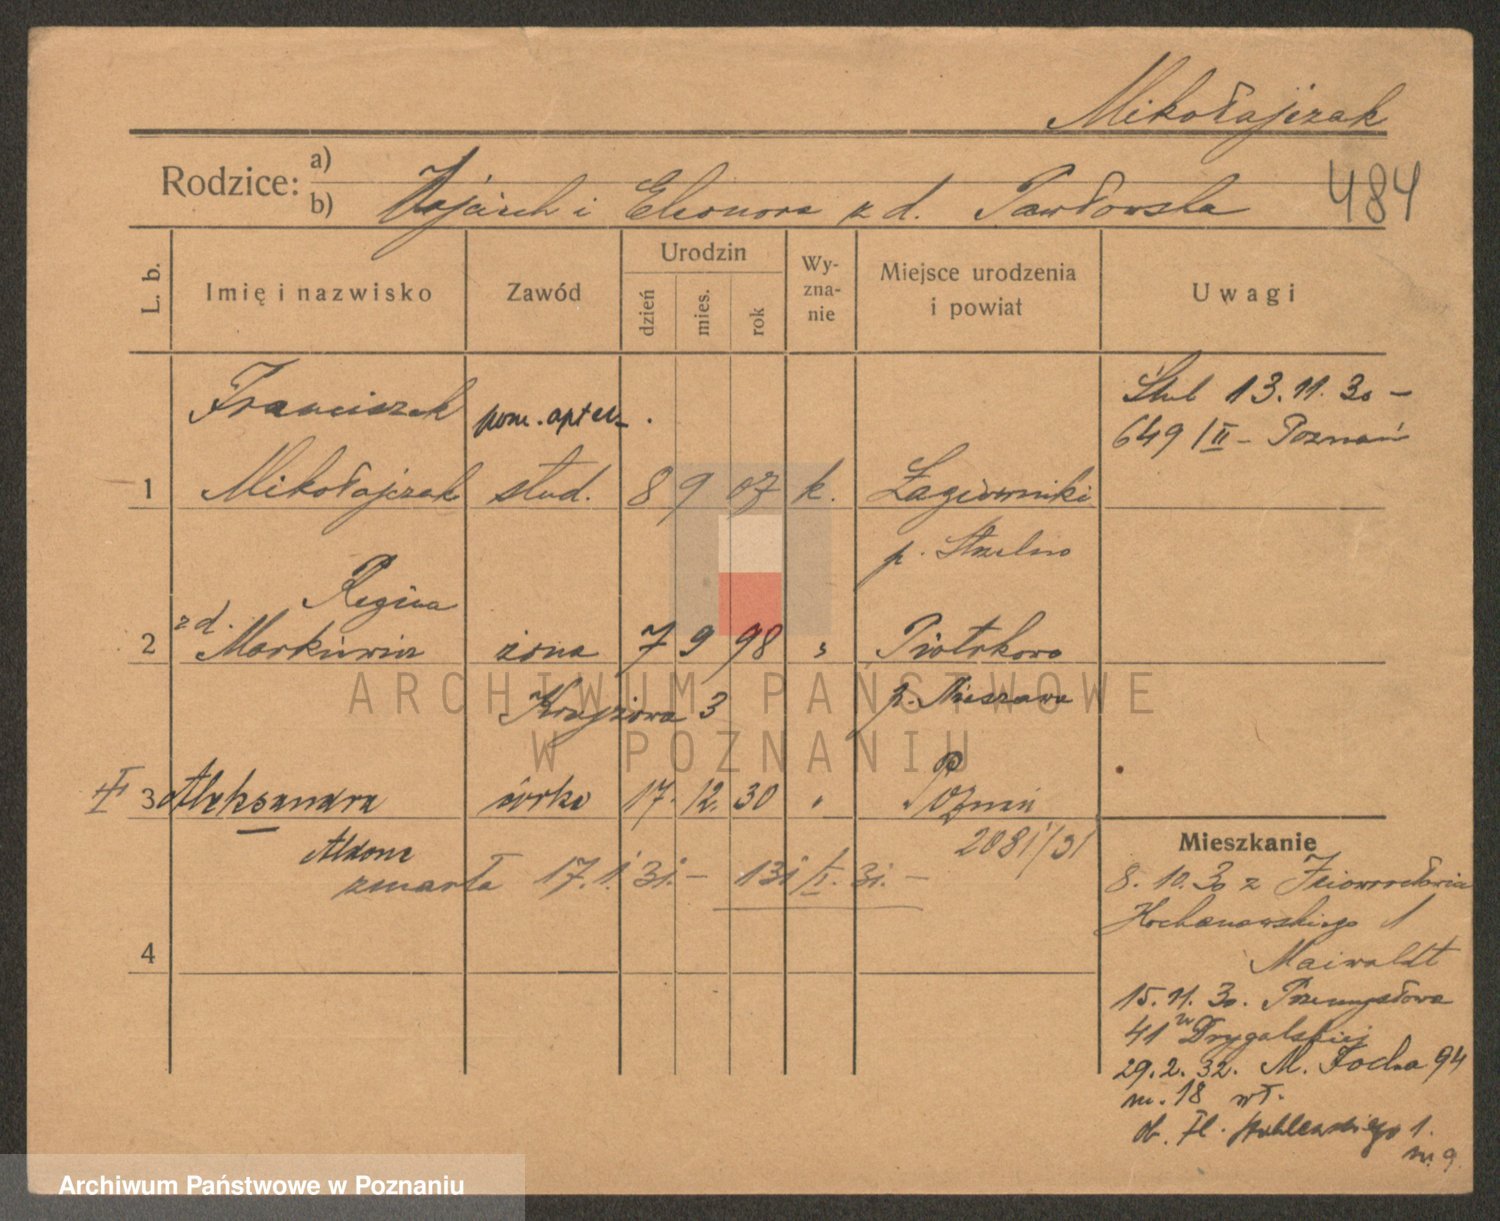 Mikołajczak
Rodzice: a)
b) Wojciech i Eleonora z d. Pawłowska
484
L. b.
Imię i nazwisko
Zawód
Urodzin
dzień
mies.
rok
Wy-
zna-
nie
Miejsce urodzenia
i powiat
Uwagi
Franciszek pom. aptek.
Ślub 13.11.30 –
649/II – Poznań
1 Mikołajczak stud. 8 9 07 k. Łagiewniki
p. Strzelno
Regina
z d.
2 Markiewicz żona 7 9 98 Piotrkowo
3 p. Nieszawa
3 Aleksandra córka 17. 12. 30 Poznań
2081/31
Aldona
zmarła 17.1.31. – 131/I. 31. –
4
Mieszkanie
8. 10. 30 z Inowrocławia
Kochanowskiego 1
Maiwaldt
15. 11. 30. Przemysłowa
41 u Drygalskiej
29. 2. 32. M. Focha 94
m. 18 wł.
ob. Fl. Stablewskiego 1.
m. 9
ARCHIWUM PAŃSTWOWE
W POZNANIU
Archiwum Państwowe w Poznaniu